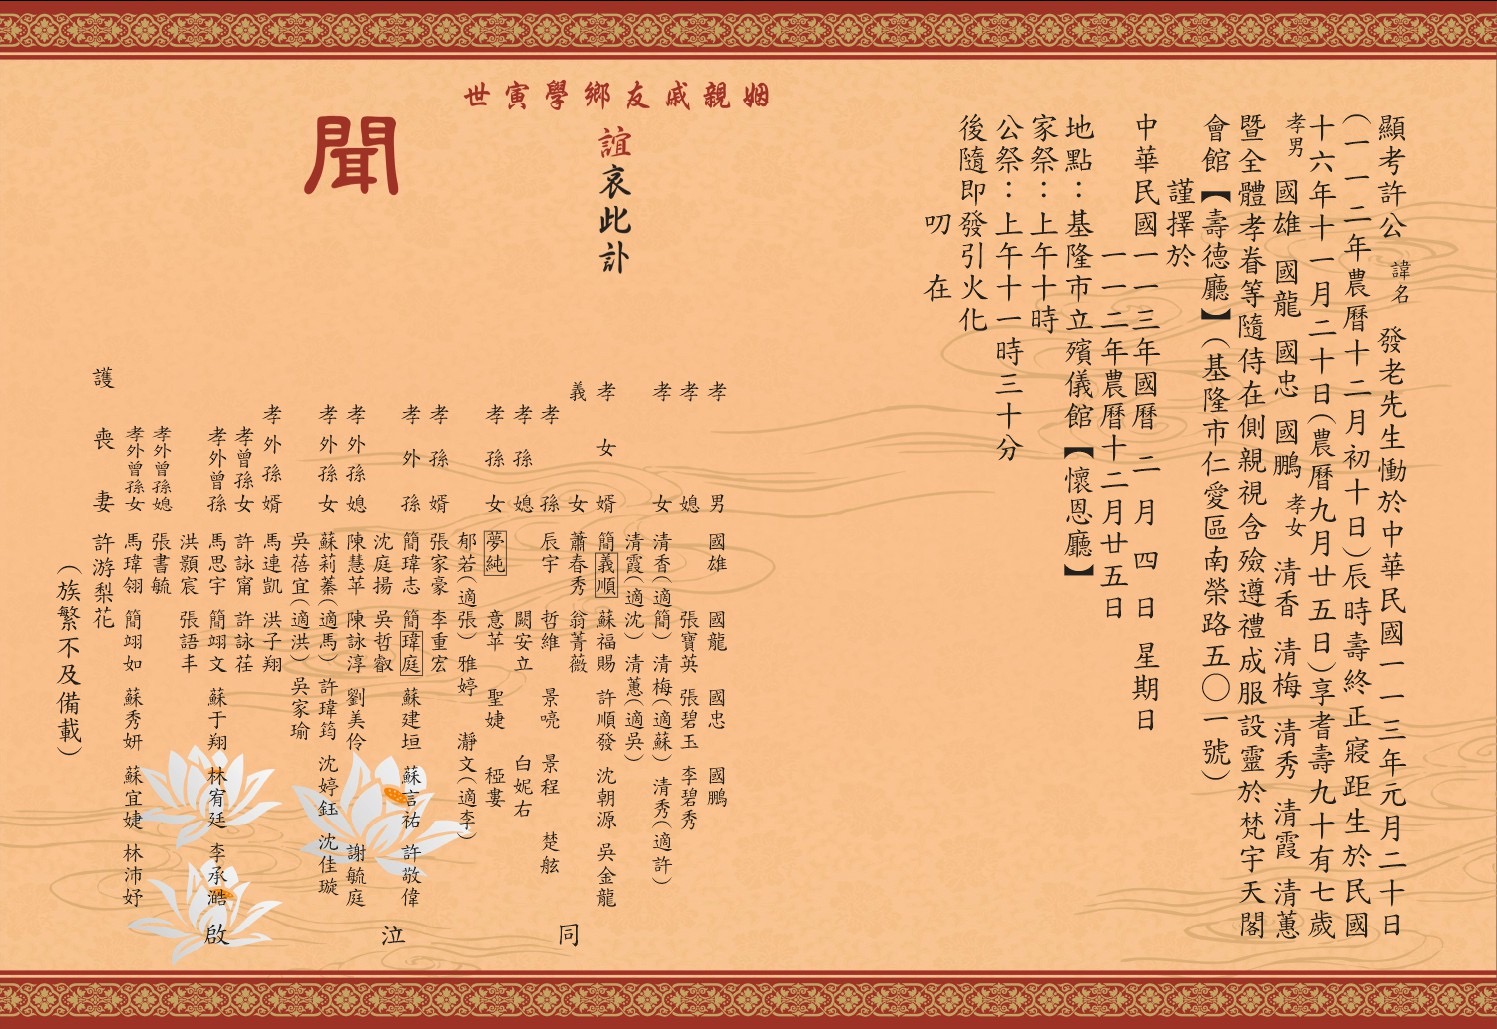 顯考許公 諱名 發老先生慟於中華民國一一三年元月二十日
(一一二年農曆十二月初十日)辰時壽終正寢距生於民國
十六年十一月二十日(農曆九月廿五日)享耆壽九十有七歲
孝男 國雄 國龍 國忠 國鵬 孝女 清香 清梅 清秀 清霞 清蕙
暨全體孝眷等隨侍在側親視含殮遵禮成服設靈於梵宇天閣
會館【壽德廳】(基隆市仁愛區南榮路五〇一號)
謹擇於
中華民國一一三年國曆 二 月 四 日 星 期 日
一一二年農曆十二月廿五日
地點:基隆市立殯儀館【懷恩廳】
家祭:上午十時
公祭:上午十一時三十分
後隨即發引火化
叨 在
姻親戚友鄉學寅世
誼哀此訃
聞
孝男 國雄 國龍 國忠 國鵬
孝媳 張寶英 張碧玉 李碧秀
孝女 清香(適簡) 清梅(適蘇) 清秀(適許)
清霞(適沈) 清蕙(適吳)
孝女婿 簡義順 蘇福賜 許順發 沈朝源 吳金龍
義女 蕭春秀 翁菁薇
孝孫 辰宇 哲維 景喨 景程 楚舷
孝孫媳 闕安立 白妮右
孝孫女 夢純 意苹 聖婕 椏婁
郁若(適張) 雅婷 瀞文(適李)
孝孫婿 張家豪 李重宏
孝外孫 簡瑋志 簡瑋庭 蘇建垣 蘇言祐 許敬偉
沈庭揚 吳哲叡
孝外孫媳 陳慧苹 陳詠淳 劉美伶 謝毓庭
孝外孫女 蘇莉蓁(適馬) 許瑋筠 沈婷鈺 沈佳璇
吳蓓宜(適洪) 吳家瑜
孝外孫婿 馬連凱 洪子翔
孝曾孫女 許詠甯 許詠荏
孝外曾孫 馬思宇 簡翊文 蘇于翔 林宥廷 李承澔
洪顥宸 張語丰
孝外曾孫媳 張書毓
孝外曾孫女 馬瑋翎 簡翊如 蘇秀妍 蘇宜婕 林沛妤
護喪妻 許游梨花
(族繁不及備載)
同 泣 啟